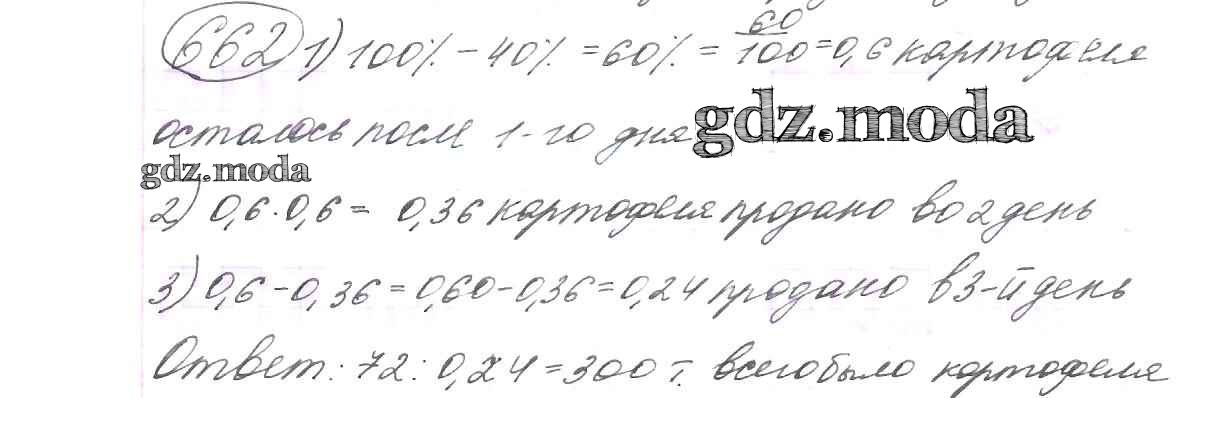 662 1) 100% - 40% = 60% = 60/100 = 0,6 картофеля
осталось после 1-го дня
gdz.moda
gdz.moda
2) 0,6 · 0,6 = 0,36 картофеля продано во 2 день
3) 0,6 - 0,36 = 0,60 - 0,36 = 0,24 продано в 3-й день
Ответ: 72 : 0,24 = 300 т. всего было картофеля